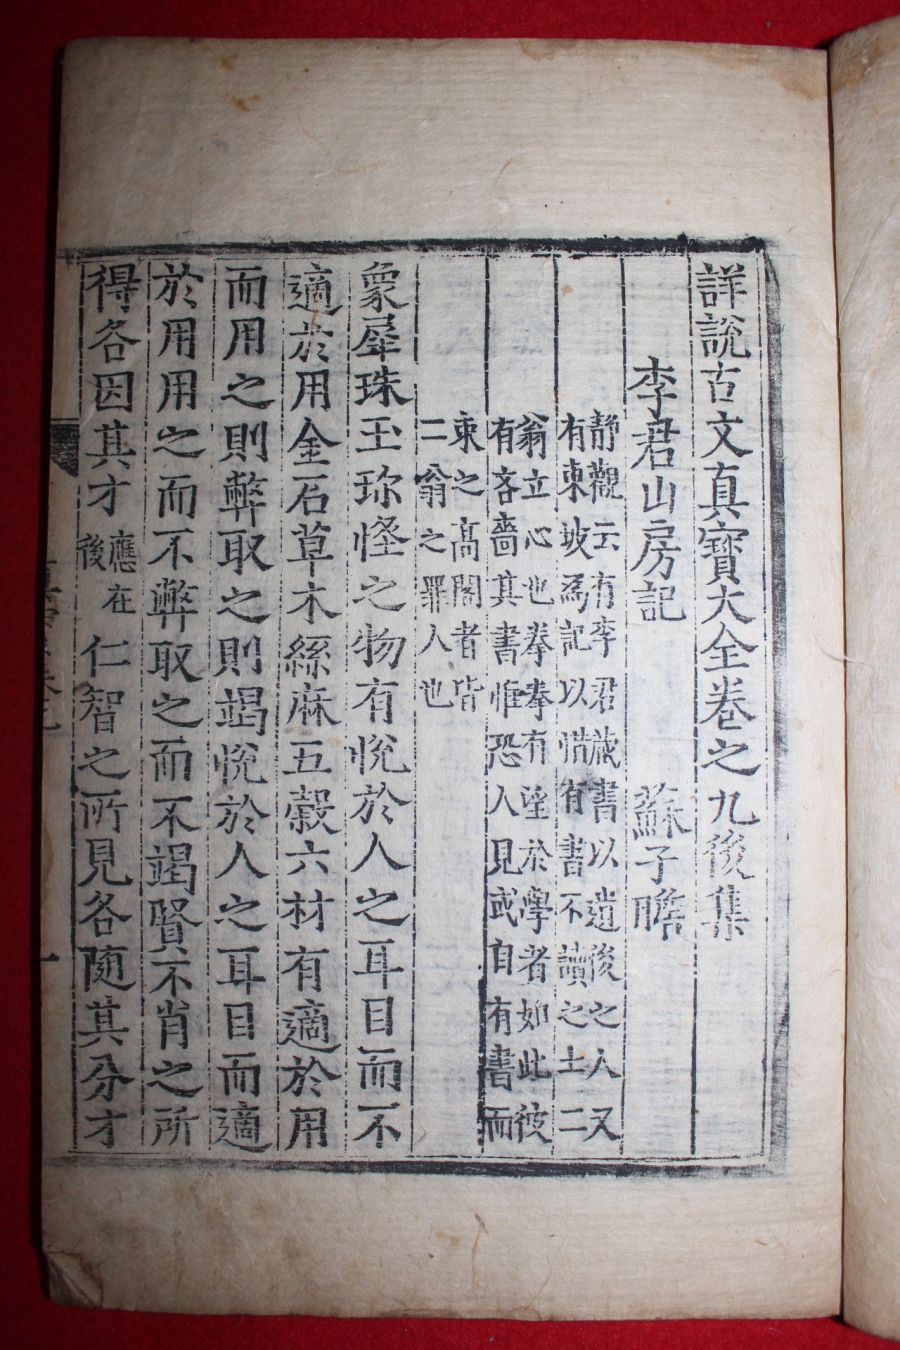 詳說古文真寶大全卷之九後集
李君山房記 蘇子瞻
靜觀云有李君藏書以遺後之人又
有東坡爲記以惜有書不讀之士二
翁立心也拳拳有望於學者如此彼
有吝嗇其書惟恐人見或自有書而
束之高閣者皆
二翁之罪人也
象犀珠玉珎怪之物有恱於人之耳目而不
適於用金石草木絲麻五穀六材有適於用
而用之則弊取之則竭恱於人之耳目而適
於用用之而不弊取之而不竭賢不肖之所
得各因其才應在後仁智之所見各隨其分才